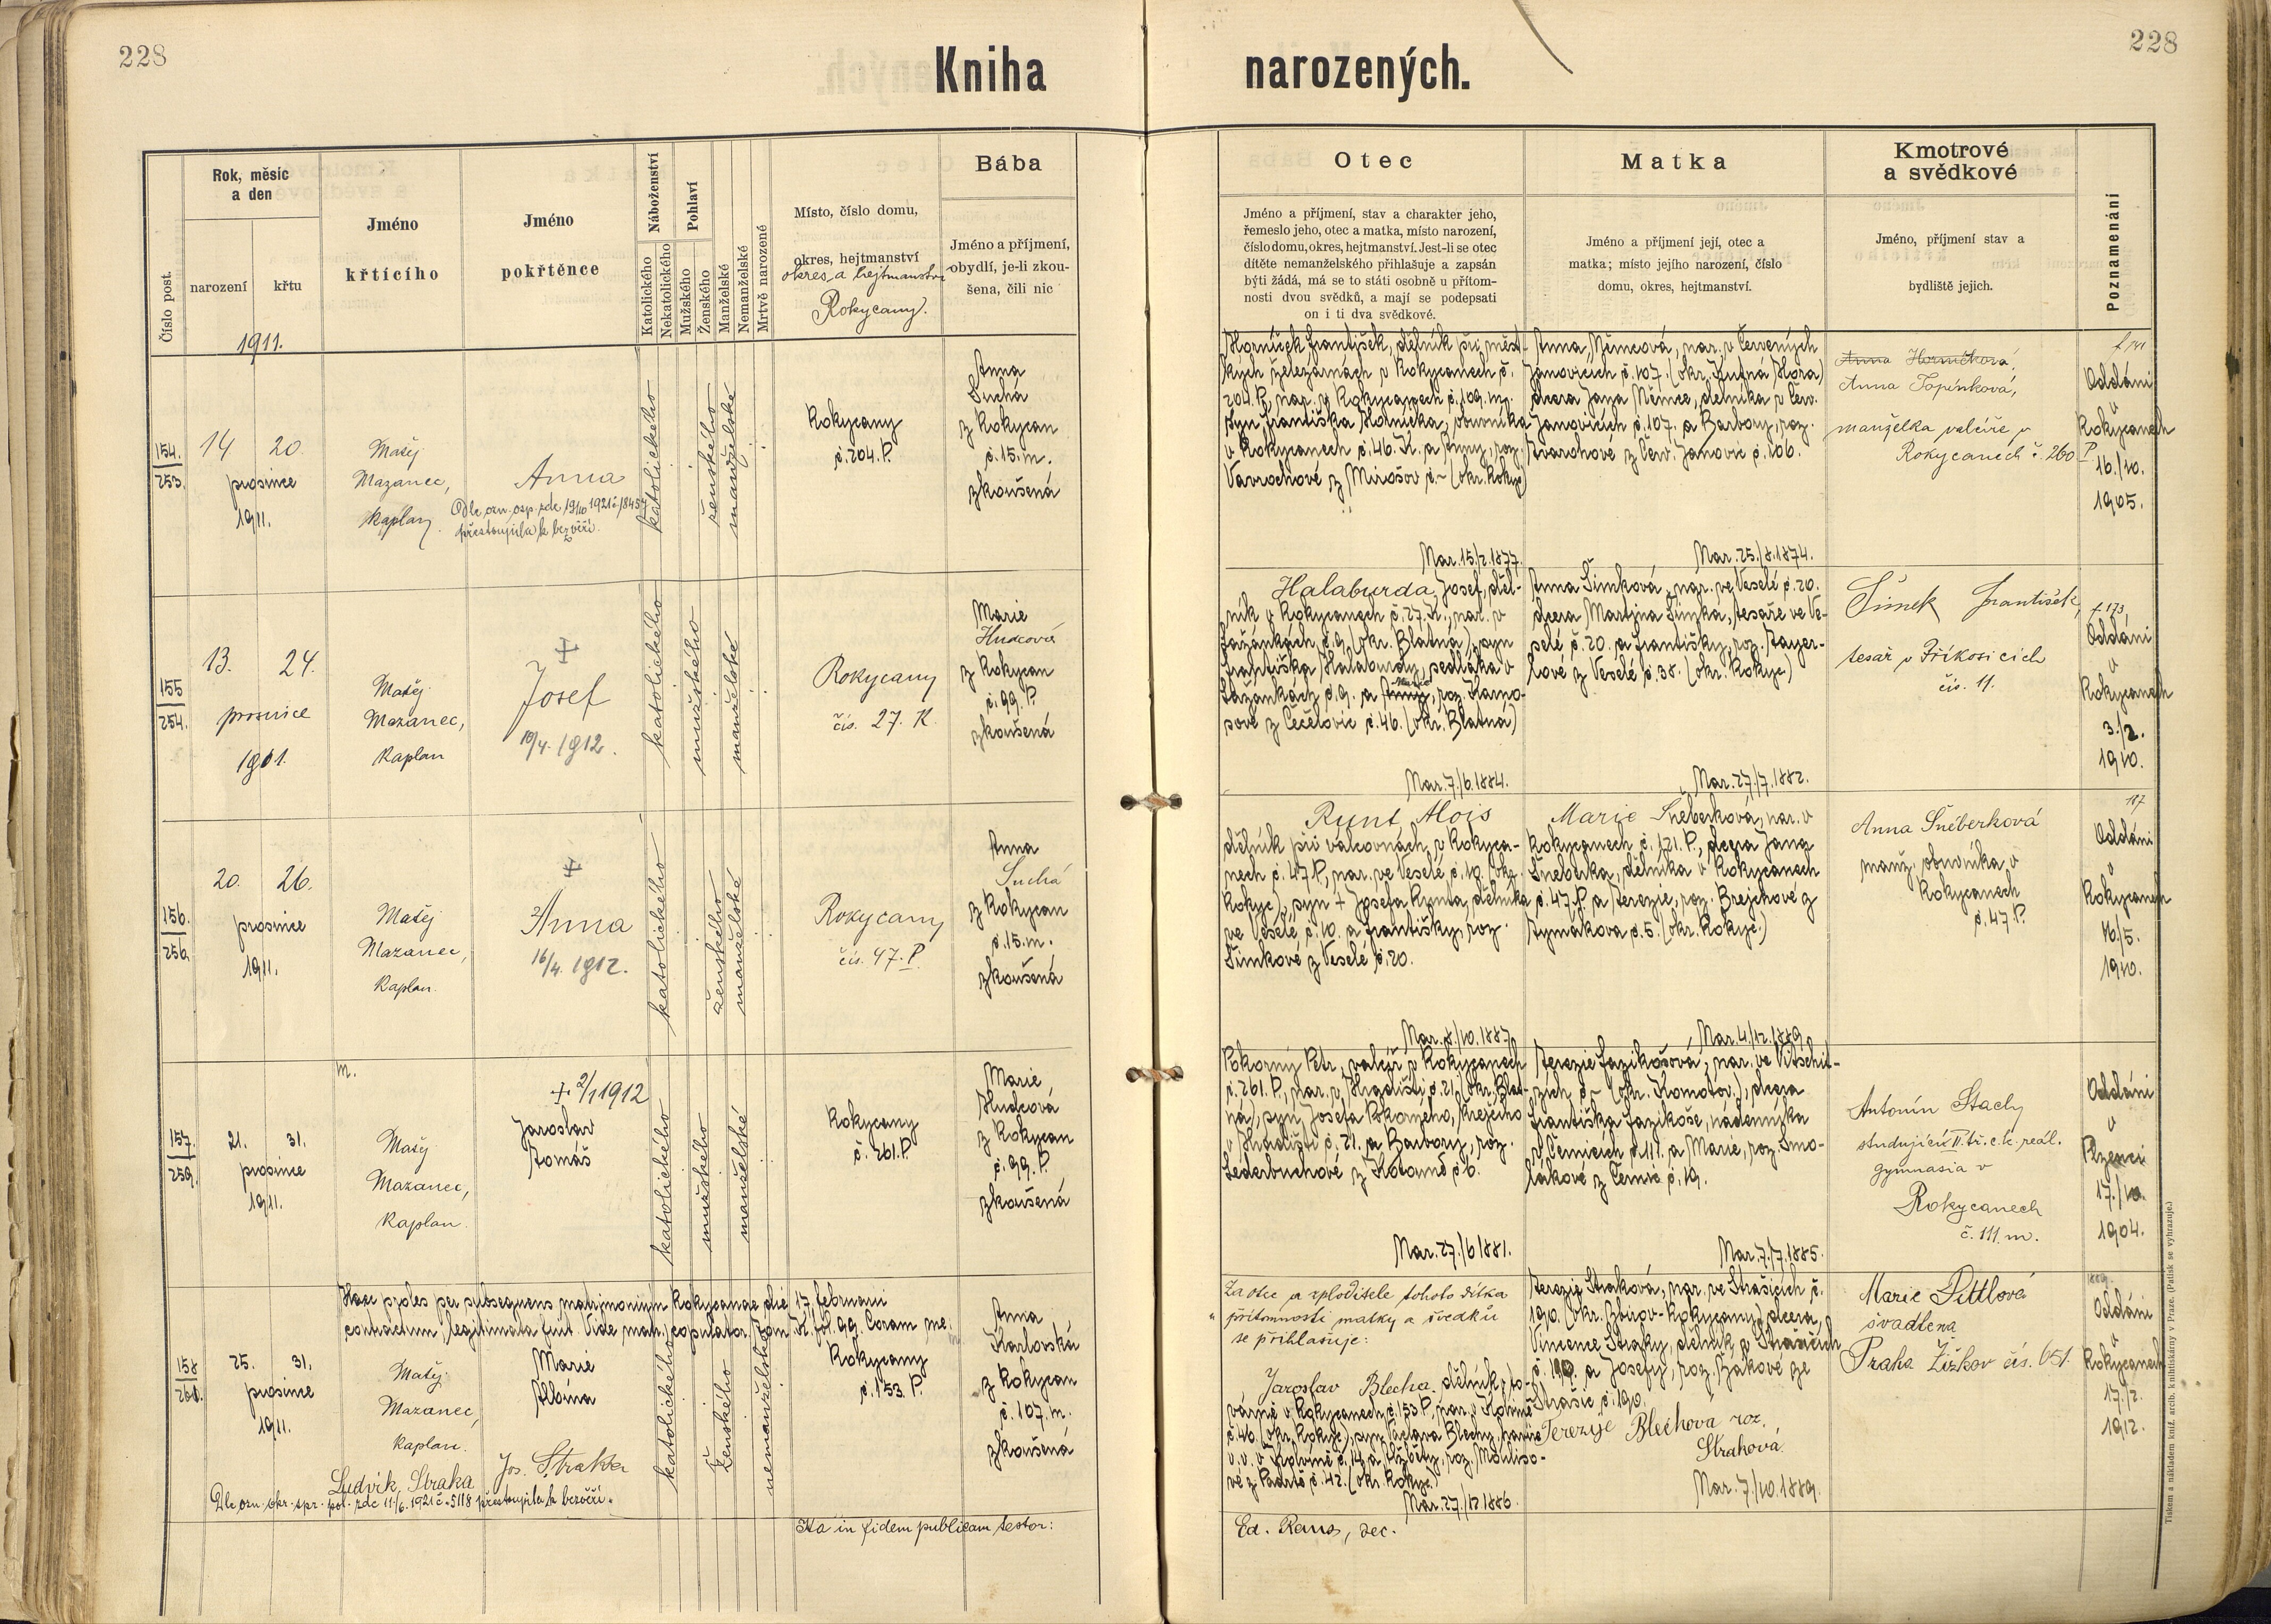 228
228
Kniha narozených.
Číslo post.
Rok, měsíc
a den
narození
křtu
Jméno
křtícího
Jméno
pokřtěnce
Náboženství
Katolického
Nekatolického
Pohlaví
Mužského
Ženského
Manželské
Nemanželské
Mrtvě narozené
Místo, číslo domu,
okres, hejtmanství
okres a hejtmanství
Rokycany.
Bába
Jméno a příjmení,
obydlí, je-li zkou-
šena, čili nic
Otec
Jméno a příjmení, stav a charakter jeho,
řemeslo jeho, otec a matka, místo narození,
číslo domu, okres, hejtmanství. Jest-li se otec
dítěte nemanželského přihlašuje a zapsán
býti žádá, má se to státi osobně u přítom-
nosti dvou svědků, a mají se podepsati
on i ti dva svědkové.
Matka
Jméno a příjmení její, otec a
matka; místo jejího narození, číslo
domu, okres, hejtmanství.
Kmotrové
a svědkové
Jméno, příjmení stav a
bydliště jejich.
Poznamenání
1911.
154.
253.
14 20.
prosince
1911.
Matěj
Mazanec,
kaplan
Anna
přestoupila k bezvěří.
katolického
ženského
manželské
Rokycany
č. 204. P.
Anna
Suchá
z Rokycan
č. 15. m.
zkoušená
Horníček František, dělník při měst-
ských železárnách v Rokycanech č.
204. P., nar. v Rokycanech č. 109. m.
syn Františka Horníčka, obuvníka
v Rokycanech č. 46. K. a Anny, roz.
Vavrochové z Mirošov č. ~ (okr. Rokyc)
Nar. 15./2. 1877.
Anna Němcová, nar. v Červených
Janovicích č. 107. (okr. Kutná Hora)
dcera Jana Němce, dělníka v Červ.
Janovicích č. 107. a Barbory, roz.
Tvarohové z Červ. Janovic č. 106.
Nar. 25./8. 1874.
Anna Horníčková,
Anna Topinková,
manželka valcíře v
Rokycanech č. 260 P.
Oddáni
v
Rokycanech
16./10.
1905.
155
254.
13. 24.
prosince
1911.
Matěj
Mazanec,
kaplan
Josef
10/4. 1912.
katolického
mužského
manželské
Rokycany
čís. 27. K.
Marie
Hudcová
z Rokycan
č. 99. P.
zkoušená
Halaburda Josef, děl-
ník v Rokycanech č. 27. K., nar. v
Lažánkách č. 9. (okr. Blatná), syn
Františka Halaburdy, sedláka v
Lažánkách č. 9. a Anny, Marie roz. Kamo-
sové z Čečelovic č. 46. (okr. Blatná)
Nar. 7./6. 1884.
Anna Šimková, nar. ve Veselé č. 20.
dcera Martina Šimka, tesaře ve Ve-
selé č. 20. a Františky, roz. Bayer-
lové z Veselé č. 38. (okr. Rokyc)
Nar. 27./7. 1882.
Šimek František,
tesař v Příkosicích
čís. 11.
f. 173.
Oddáni
v
Rokycanech
3./2.
1910.
156.
256.
20. 26.
prosince
1911.
Matěj
Mazanec,
kaplan.
Anna
16/4. 1912.
katolického
ženského
manželské
Rokycany
čís. 47. P.
Anna
Suchá
z Rokycan
č. 15. m.
zkoušená
Runt Alois
dělník při válcovnách v Rokyca-
nech č. 47 P., nar. ve Veselé č. 10. (okr.
Rokyc), syn + Josefa Runta, dělníka
ve Veselé č. 10. a Františky, roz.
Šimkové z Veselé č. 20.
Nar. 8./10. 1887.
Marie Šneberková, nar. v
Rokycanech č. 121. P., dcera Jana
Šneberka, dělníka v Rokycanech
č. 47. P. a Terezie, roz. Brejchové z
Tymákova č. 5. (okr. Rokyc.)
Nar. 4./12. 1889.
Anna Šneberková
manž. obuvníka v
Rokycanech
č. 47 P.
187
Oddáni
v
Rokycanech
16./5.
1910.
157.
259.
21. 31.
prosince
1911.
m.
Matěj
Mazanec,
kaplan.
+ 2/1 1912
Jaroslav
Tomáš
katolického
mužského
manželské
Rokycany
č. 261. P.
Marie
Hudcová
z Rokycan
č. 99. P.
zkoušená
Pokorný Petr, valcíř v Rokycanech
č. 261. P., nar. v Hradišti č. 21. (okr. Blat-
ná), syn Josefa Pokorného, krejčího
v Hradišti č. 21. a Barbory, roz.
Lederbuchové z Kotouně č. 6.
Nar. 27./6 1881.
Františka Fazikoše, nádenníka
v Černicích č. 111. a Marie, roz. Smo-
lákové z Černic č. 19.
Nar. 7./7. 1885.
Antonín Stach
studující II. tř. c. k. reál.
gymnasia v
Rokycanech
č. 111. m.
Oddáni
v
Plzenci
17./10.
1904.
158
260.
25. 31.
prosince
1911.
Haec proles per subsequens matrimonium Rokycanae die 17. februarii
contractum, legitimata fuit. Vide matr. copulator. Tom. K. fol. 99. Coram me.
Matěj
Mazanec,
kaplan.
Marie
Albína
Ludvík Straka Jos. Straka
Dle ozn. okr. spr. pol. zde 11./6. 1921 č. 5118 přestoupila k bezvěří.
katolického
ženského
nemanželské
Rokycany
č. 153. P.
Anna
Karlovská
z Rokycan
č. 107. m.
zkoušená
Za otce a zploditele tohoto dítka
v přítomnosti matky a svědků
se přihlašuje:
Jaroslav Blecha, dělník v to-
várně v Rokycanech č. 153 P., nar. v Kolvíně
č. 46. (okr. Rokyc), syn Václava Blechy,
Nar. 27./12. 1886.
Terezie Straková, nar. ve Strašicích č.
190. (okr. Zbirov-Rokycany), dcera
Vincence Straky, dělníka v Strašicích
č. 190. a Josefy, roz. Žákové ze
Strašic č. 190.
Terezije Blechova roz.
Straková.
Nar. 7./10. 1889.
Marie Pittlová
švadlena
Praha Žižkov čís. 651.
Oddáni
v
Rokycanech
17./2.
1912.
Ita in fidem publicam testor:
Ed. Rano, dec.
Tiskem a nákladem kníž. arcib. knihtiskárny v Praze. (Patisk se vyhrazuje.)